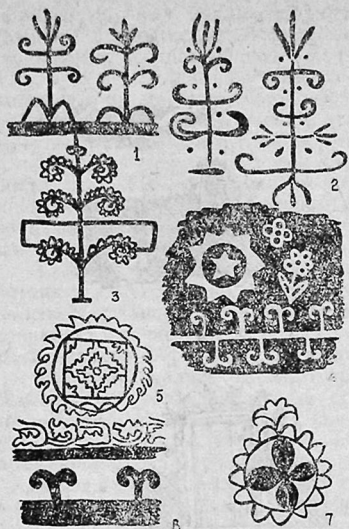 1
2
3
5
7